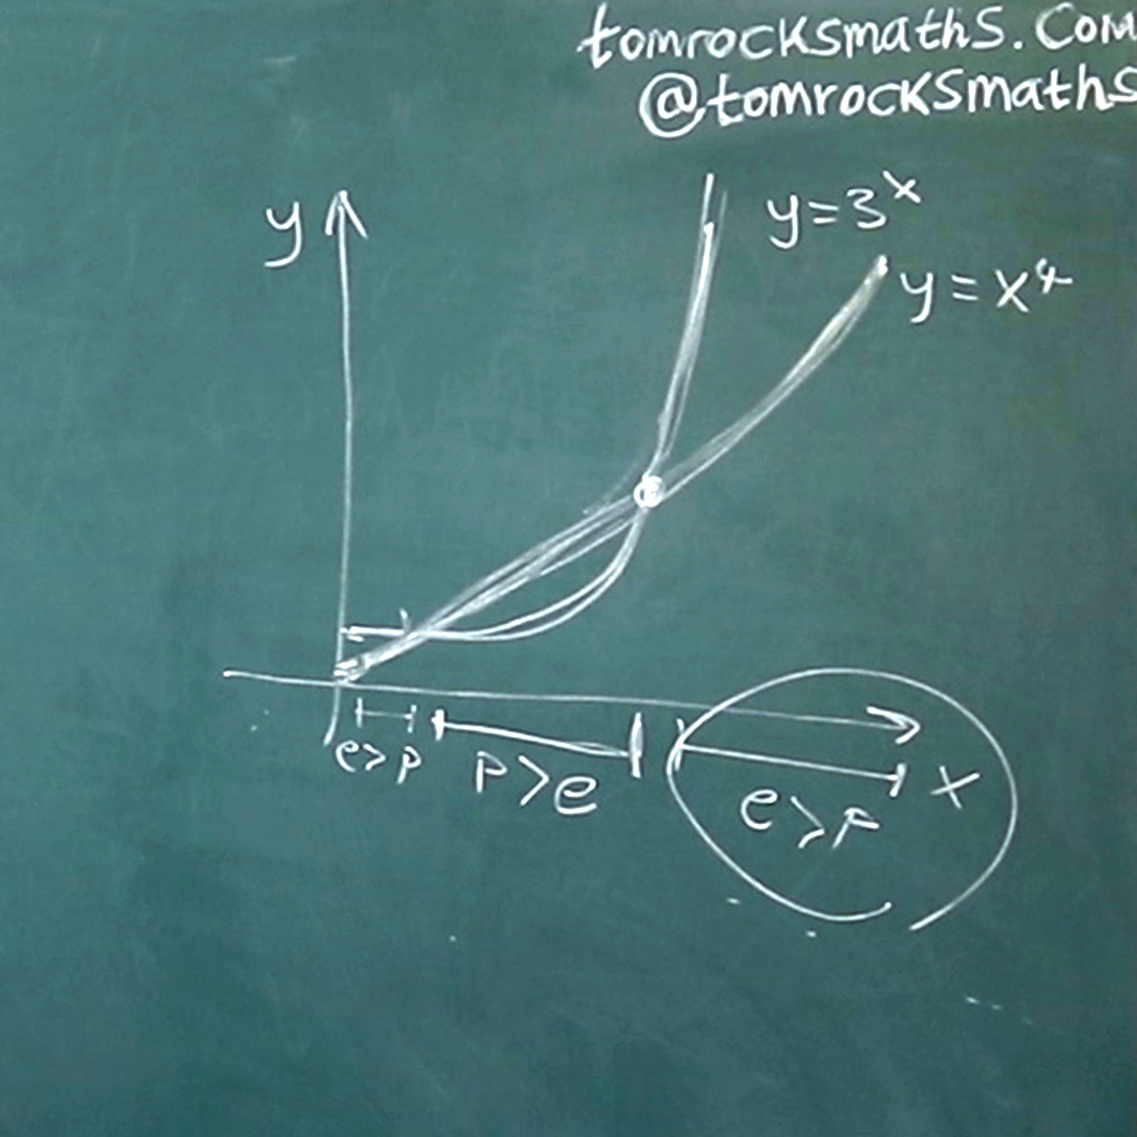 tomrocksmaths.com
@tomrocksmaths
y
y=3^x
y=x⁴
e>p
p>e
e>p
x